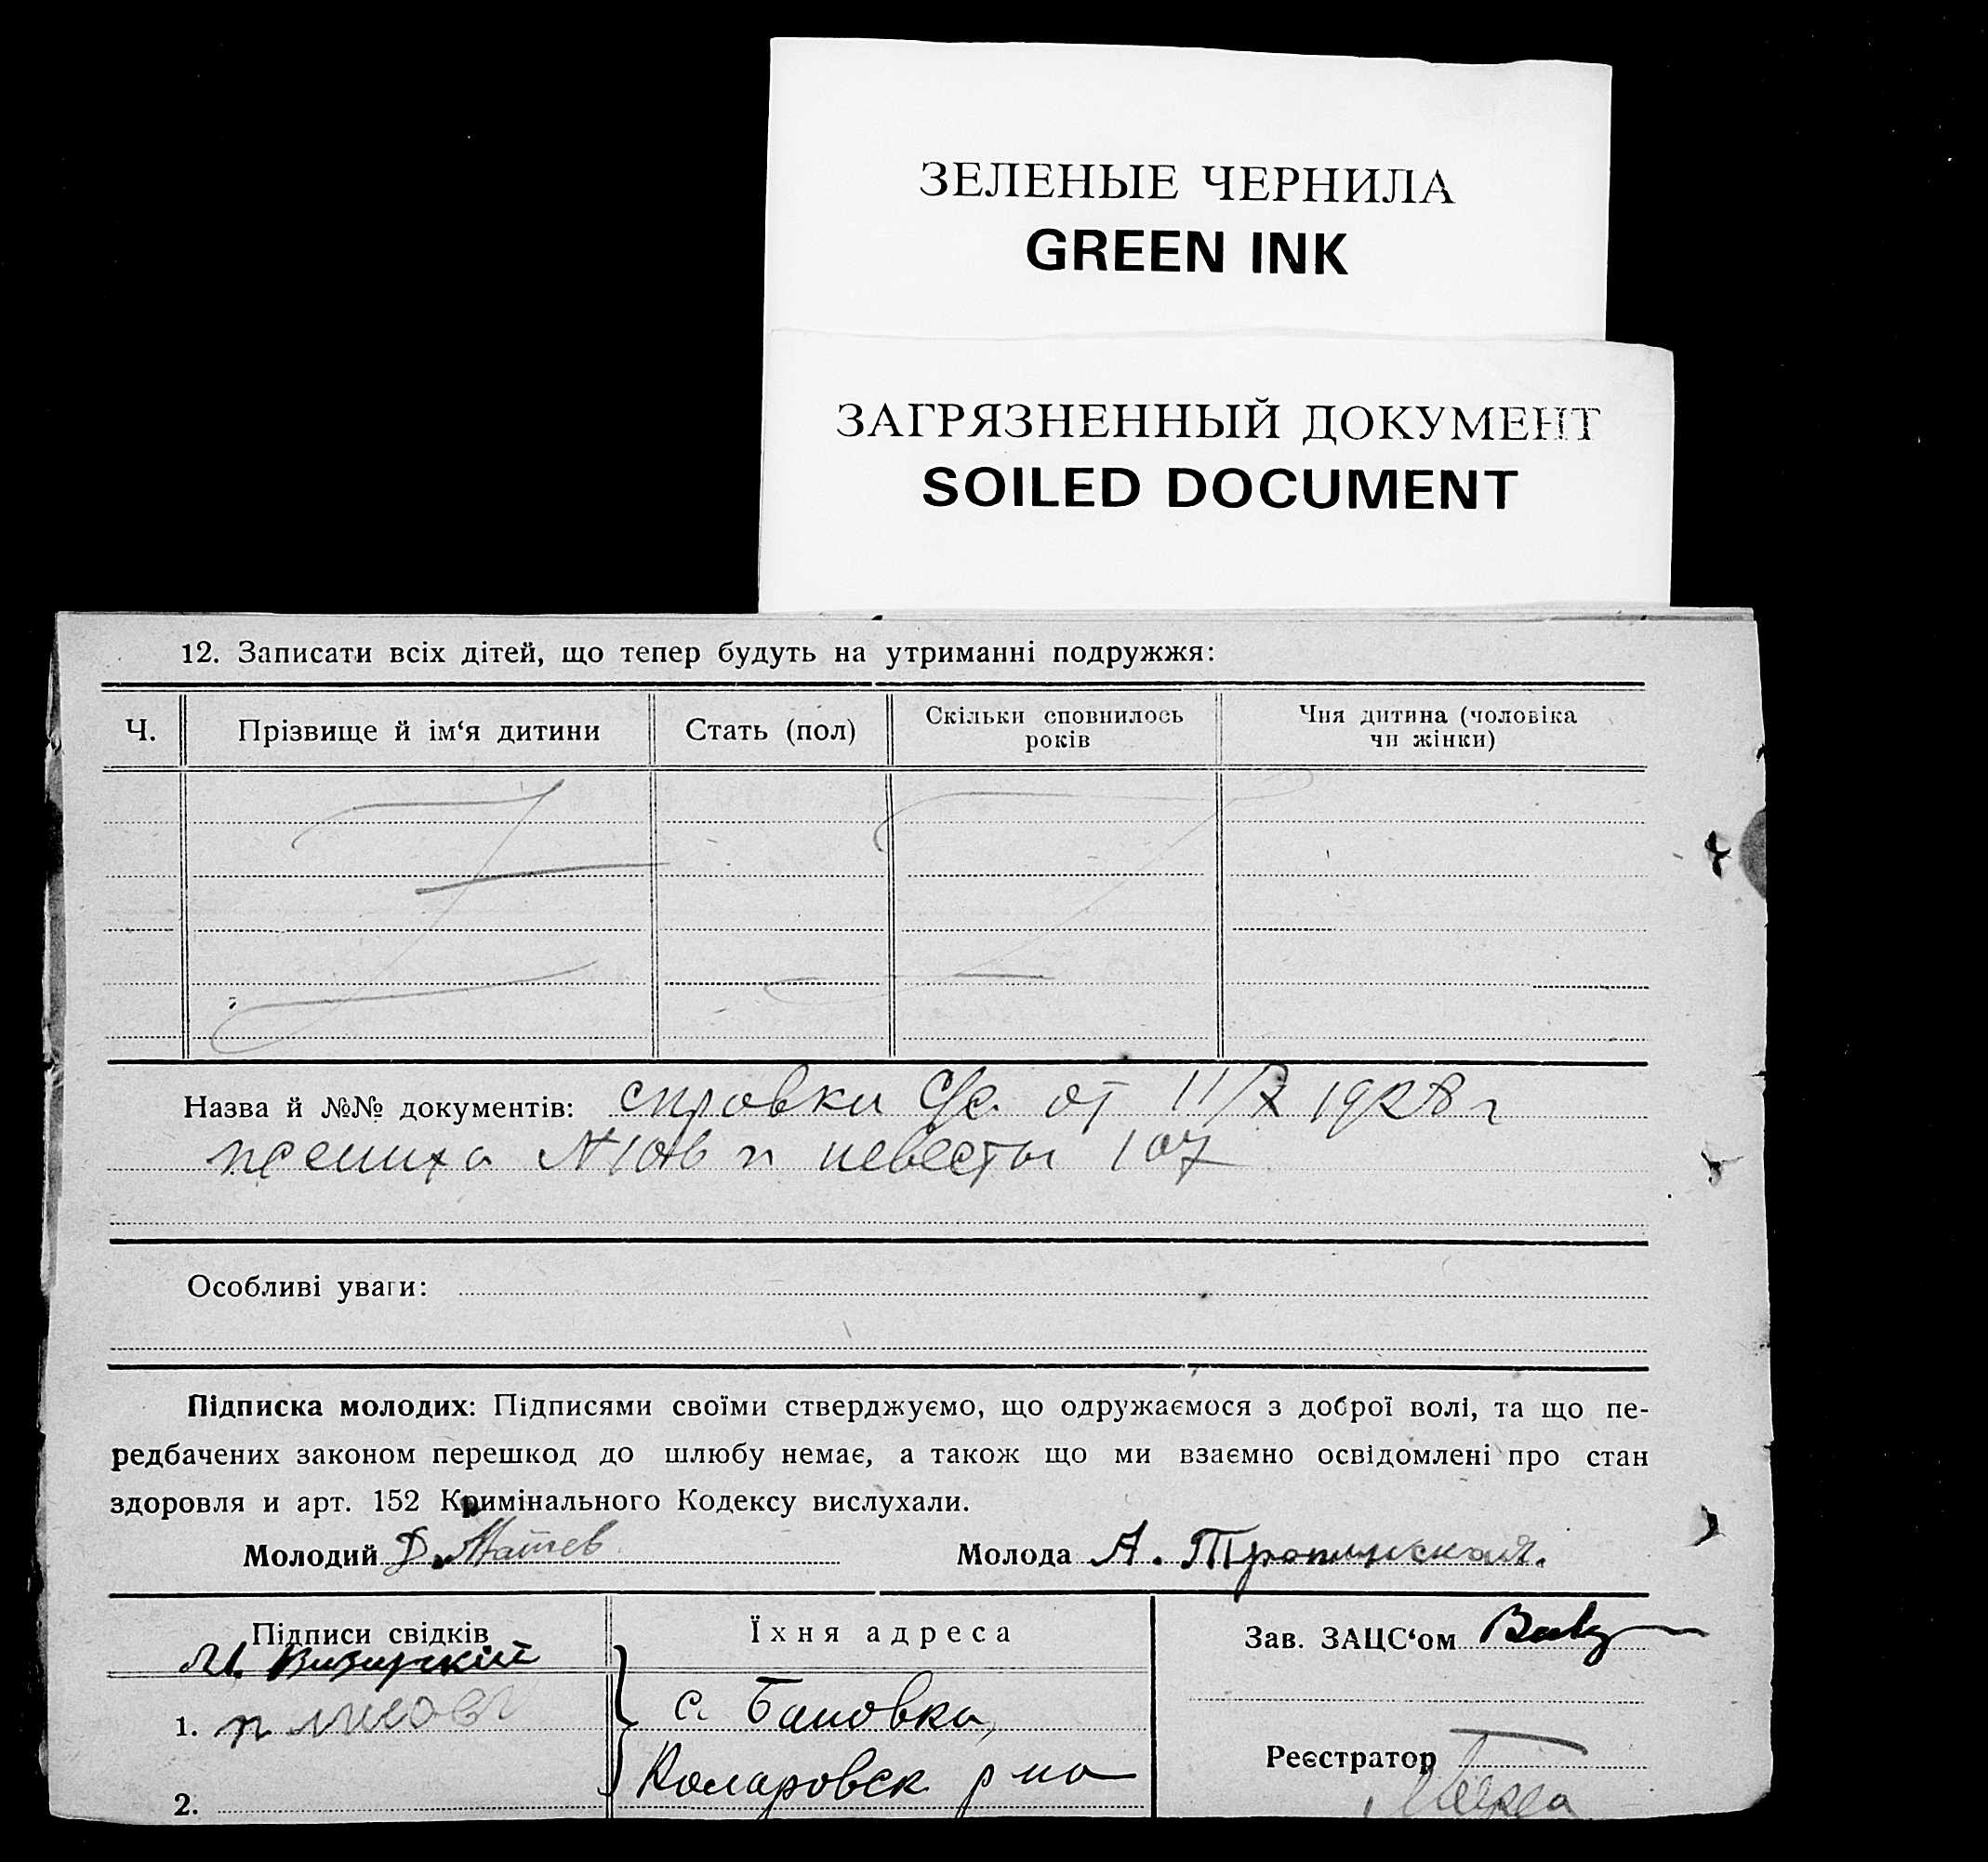 ЗЕЛЕНЫЕ ЧЕРНИЛА
GREEN INK
ЗАГРЯЗНЕННЫЙ ДОКУМЕНТ
SOILED DOCUMENT
12. Записати всіх дітей, що тепер будуть на утриманні подружжя:
Ч.
Прізвище й ім‘я дитини
Стать (пол)
Скільки сповнилось
років
Чия дитина (чоловіка
чи жінки)
Назва й №№ документів: справки С/с. от 11/X 1928 г
жениха № 106 и невесты 107
Особливі уваги:
Підписка молодих: Підписями своїми стверджуємо, що одружаємося з доброї волі, та що пе-
редбачених законом перешкод до шлюбу немає, а також що ми взаємно освідомлені про стан
здоровля и арт. 152 Кримінального Кодексу вислухали.
Молодий Д.
Молода А.
Підписи свідків
Їхня адреса
Зав. ЗАЦС‘ом
М.
1. п
с. Бановка,
Реєстратор
Коларовск р на
2.